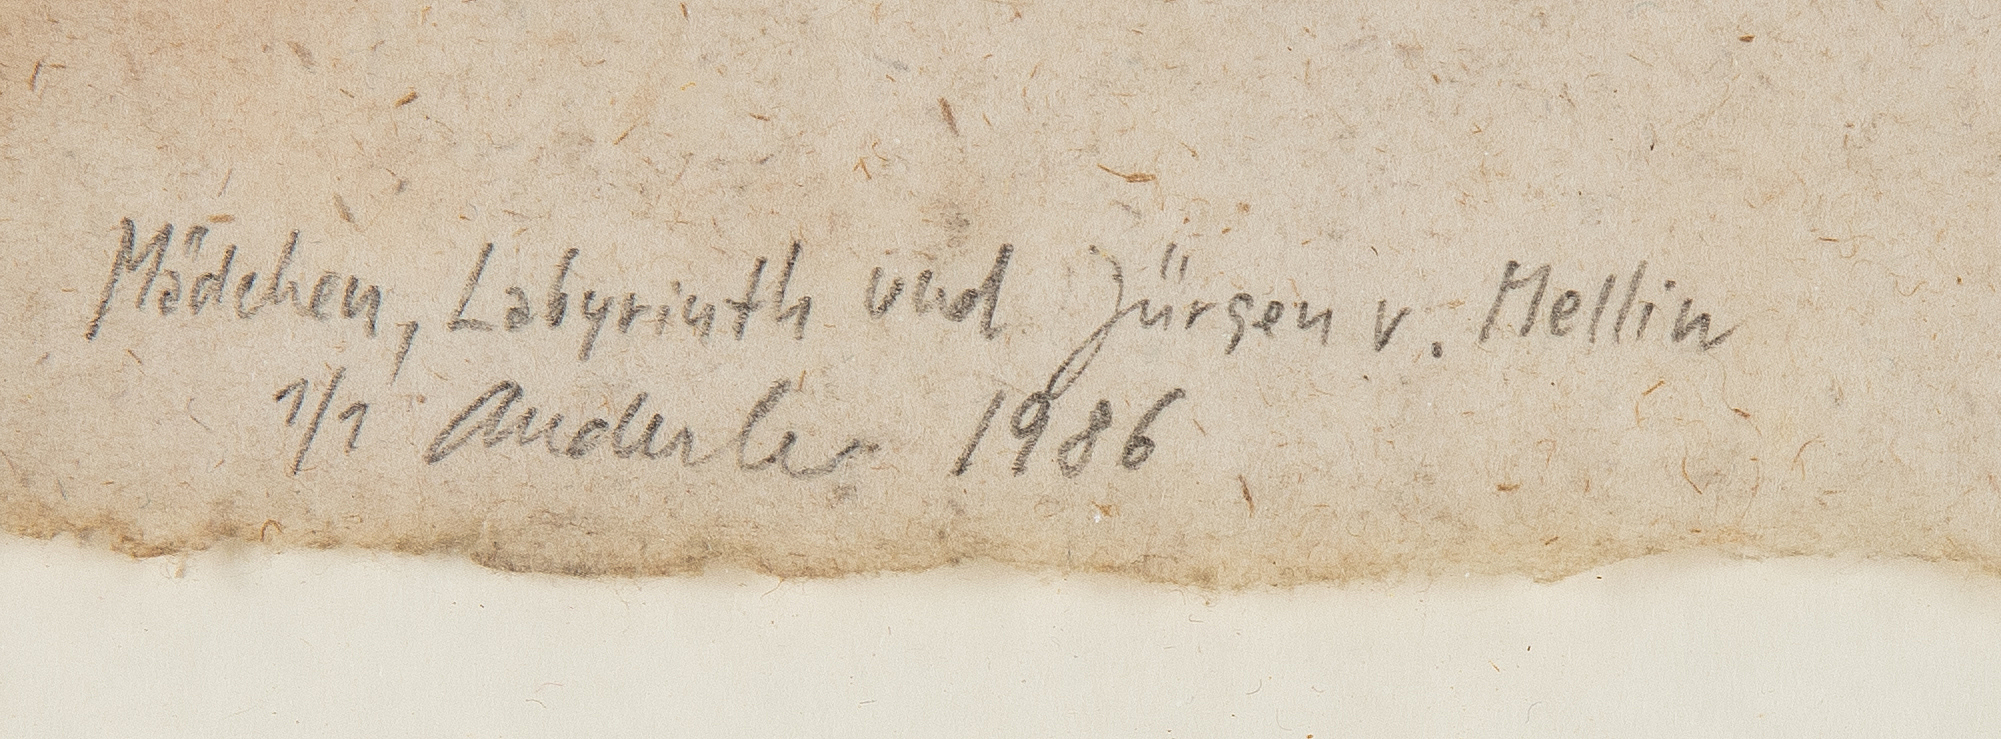 Mädchen, Labyrinth und Jürgen v. Mellin
1/1 Anderle 1986